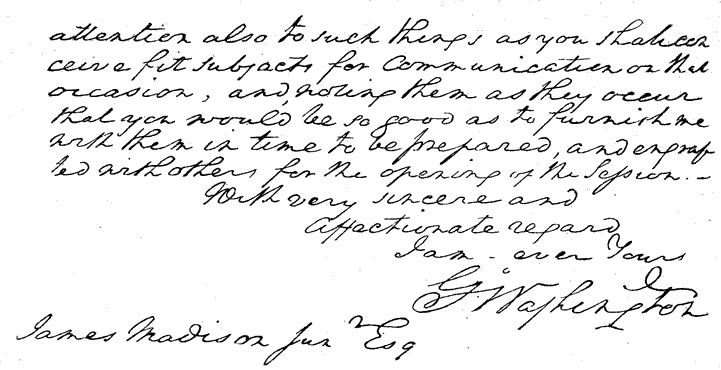 attention also to such things as you shall con
ceive fit subjects for Communication on that
occasion, and, noting them as they occur
that you would be so good as to furnish me
with them in time to be prepared, and engraf
ted with others for the opening of the Session.–
With very sincere and
Affectionate regard
I am - ever Yours
Go Washington
James Madison Junr Esq